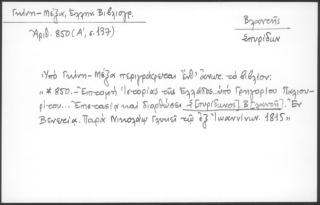 Γκίνη-Μέξα, Ἑλλην. Βιβλιογρ.
Ἀριθ. 850 (Α', σ. 137)
Βλαντῆς
Σπυρίδων
Ὑπὸ Γκίνη-Μέξα περιγράφεται ἔνθ' ἀνωτ. τὸ βιβλίον:
"*850.- Ἐπιτομὴ Ἱστορίας τῆς Ἑλλάδος ὑπὸ Γρηγορίου Παλιου-
ρίτου... Ἐπιστασία καὶ διορθώσει Σ[πυρίδωνος] Β[λαντῆ]. Ἐν
Βενετίᾳ. Παρὰ Νικολάῳ Γλυκεῖ τῷ ἐξ Ἰωαννίνων. 1815"